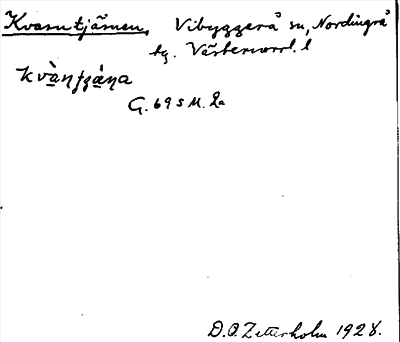 Kvarntjärnen, Vibyggerå sn, Nordingrå
tg. Västernorrl. l
G. 69 S M. 2a
D.O. Zetterholm 1928.